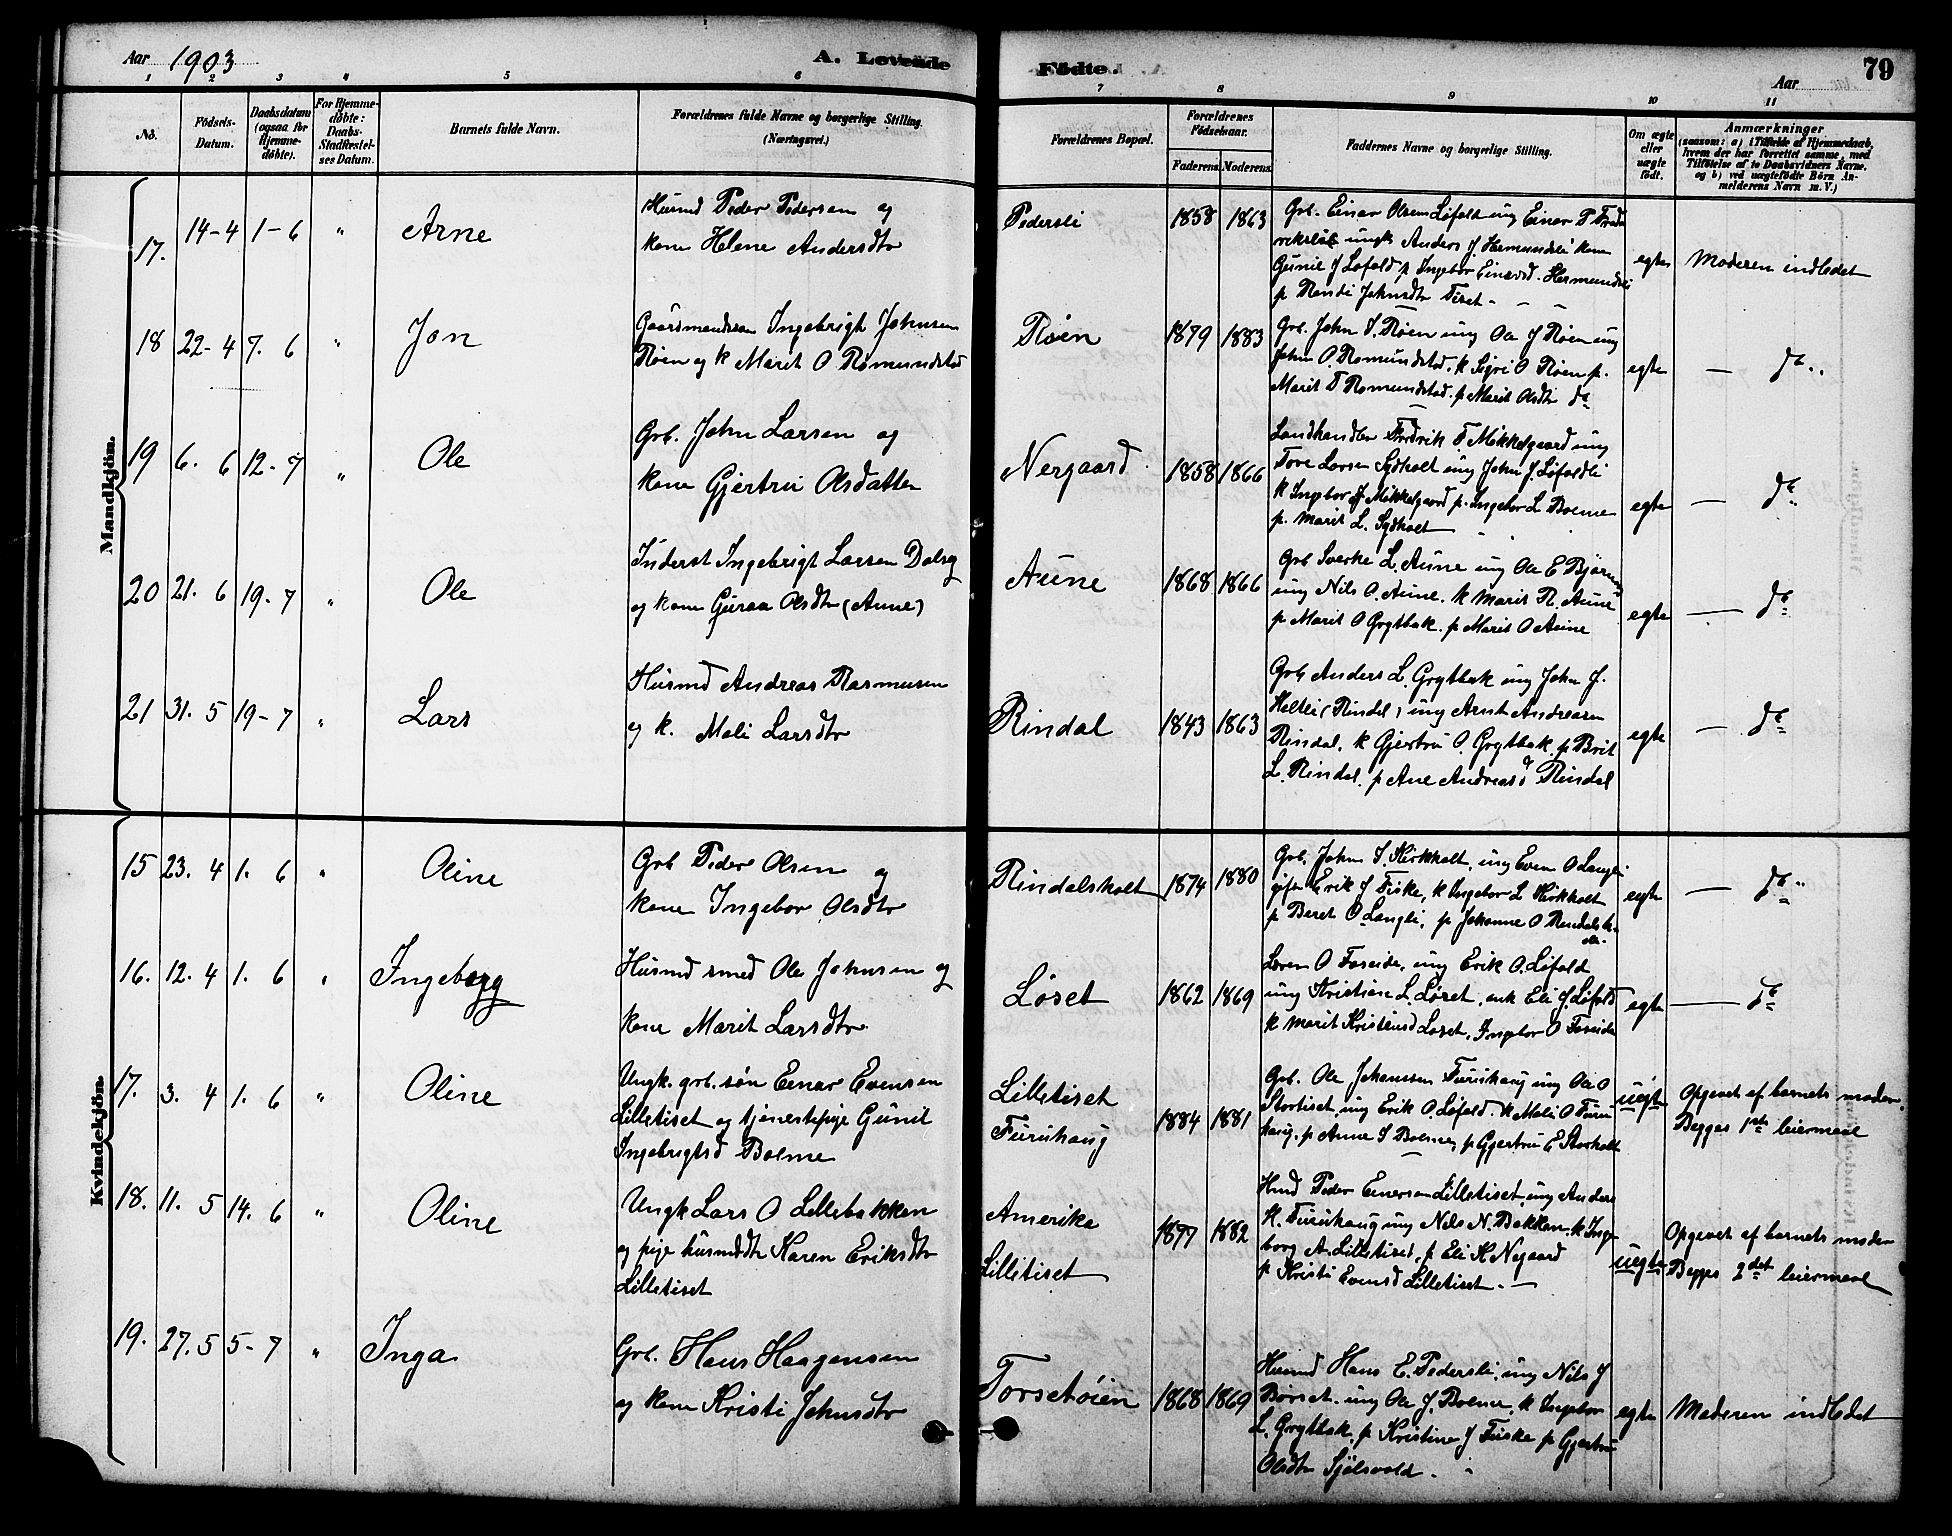 Aar 1903
A. Levende
Fødte.
Aar
79
1 2 3 4 5 6 7 8 9 10 11
No.
Fødsels-Datum.
Daabsdatum (ogsaa for Hjemmedøbte).
For Hjemmedøbte: Daabs-Stadfæstelses Datum.
Barnets fulde Navn.
Forældrenes fulde Navne og borgerlige Stilling.
(Næringsvei.)
Forældrenes Bopæl.
Forældrenes Fødselsaar.
Faderens. Moderens.
Faddernes Navne og borgerlige Stilling.
Om ægte eller uægte født.
Anmærkninger
(saasom: a) i Tilfælde af Hjemmedaab,
hvem der har forrettet samme, med
Tilføielse af to Daabsvidners Navne.
og b) ved uægtefødte Børn An-
melderens Navn m. V.)
Mandkjön.
17. 14-4 1-6 " Arne
Husmd Peder Pedersen og
kone Helene Andersdtr
Pedersli 1858 1863
Grb. Einar Olsen Løfald ung Einar P Fred
rikslii ungk Anders J. Hermundsli kone
Gunil J Løfald, p Ingebor Einarsd. Hermundsli
p Randi Johnsdtr Tiset
egte
Moderen indledet
18 22-4 7. 6 " Jon
Gaardmandssøn Ingebrigt Johnsen
Røen og k Marit O Romundstad
Røen 1879 1883
Grb. John I. Røen ung Ole J Røen ung
John O. Romundstad, k Sigri O Røen p.
Marit T Romundstad. p Marit Olsdtr do
egte
— do
19 6. 6 12-7 " Ole
Grb. John Larsen og
kone Gjertru Olsdatter
Nergaard 1858 1866
Landhandler Fredrik T Mikkelgaard ung
Tore Larsen Sydholt ung John J. Løfaldli
k Ingebor J Mikkelgaard p. Ingebor L Bolme
p. Marit L. Sydholt
egte
— do
20 21. 6 19-7 " Ole
Inderst Ingebrigt Larsen Dalsg
og kone Guraa Olsdtr (Aune)
Aune 1868 1866
Grb Sverke L. Aune ung Ole E Bjørnaas
ung Nils O. Aune. k Marit N. Aune
p Marit O Grytbak. p Marit O Aune
egte
— do
21 31. 5 19-7 " Lars
Husmd Andreas Rasmusen
og k. Mali Larsdtr
Rindal 1843 1863
Grb Anders L. Grytbak ung John J.
Heltli (Rindal) ung Arnt Andreasen
Rindal, k Gjertru O. Grytbak p Brit
L. Rindal. p Ane Andreasd Rindal
egte
— do
Kvindekjön.
15 23. 4 1. 6 " Oline
Grb Peder Olsen og
kone Ingebor Olsdtr
Rindalsholt 1874 1880
Grb. John I. Kirkholt, ung Even O Langli
gift Erik J Fiske, k Ingebor L Kirkholt
p Beret O Langli, p Johanne O Rindalsh.
egte
— do
16. 12. 4 1. 6 " Ingeborg
Husmd smed Ole Johnsen og
kone Marit Larsdtr
Løset 1862 1869
Loren O Foseide, ung Erik O. Løfald
ung Kristian L. Løset, enk Eli J. Løfald
k Marit Kristensd Løset, Ingebor O Foseide
egte
— do
17. 3. 4 1. 6 " Oline
Ungk. grb. søn Einar Evensen
Lilletiset og tjenestepige Gunil
Ingebrigtsd Bolme
Lilletiset
Furuhaug 1884 1881
Grb. Ole Johansen Furuhaug ung Ole O
Stortiset, ung Erik O. Løfald. k Mali O Furu
haug. p Anne I Bolme, p Gjertru E Storholt
uegte
Opgivet af barnets moder.
Begges 1ste leiermaal
18. 11. 5 14. 6 " Oline
Ungk Lars O Lillebakken
og pige husmdtr Karen Eriksdtr
Lilletiset
Amerika
Lilletiset 1877 1882
Hmd Peder Einersen Lilletiset, ung Anders
K. Furuhaug ung Nils N. Bakken. k Inge
borg A. Lilletiset, p Eli K Negaard
p Kristi Evensd Lilletiset.
uegte
Opgivet af barnets moder
Begges 2det leiermaal
19. 27. 5 5-7 " Inga
Grb. Hans Haagensen
og kone Kristi Johnsdtr
Torsetøien 1868 1869
Husmd Hans E. Pedersli, ung Nils J
Børset, ung Ole J Bolme, k Ingebor
L. Grytbak, p Kristine J Fiske p Gjertru
Olsdtr Sjølsvold.
egte
Moderen indledet